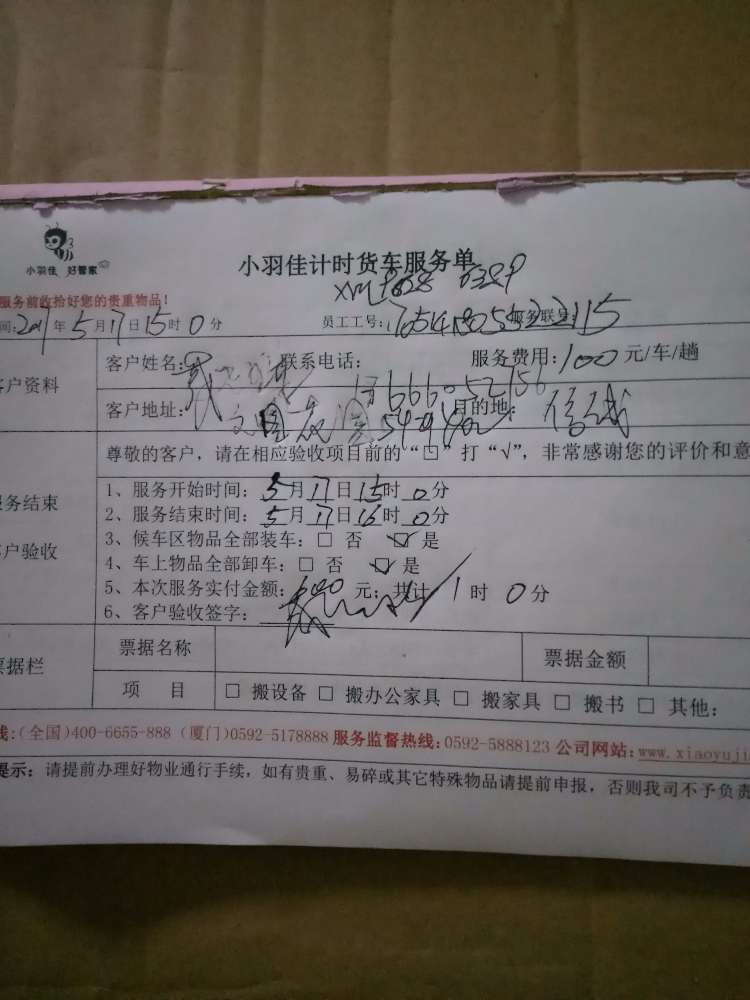 小羽佳 好管家
小羽佳计时货车服务单
服务前收拾好您的贵重物品！
间: 年5月17日15时0分 员工工号:
客户资料 客户姓名: 联系电话: 服务费用:100元/车/趟
客户地址: 目的地:
尊敬的客户，请在相应验收项目前的“□”打“√”，非常感谢您的评价和意
务结束
客户验收
1、服务开始时间:5月17日15时0分
2、服务结束时间:5月17日16时0分
3、候车区物品全部装车:□ 否 ☑ 是
4、车上物品全部卸车:□ 否 ☑ 是
5、本次服务实付金额: 元；共计 1时0分
6、客户验收签字:
票据栏 票据名称 票据金额
项 目 □ 搬设备 □ 搬办公家具 □ 搬家具 □ 搬书 □ 其他:
线:(全国)400-6655-888 (厦门)0592-5178888 服务监督热线:0592-5888123 公司网站:www.xiaoyuji
提示: 请提前办理好物业通行手续，如有贵重、易碎或其它特殊物品请提前申报，否则我司不予负责